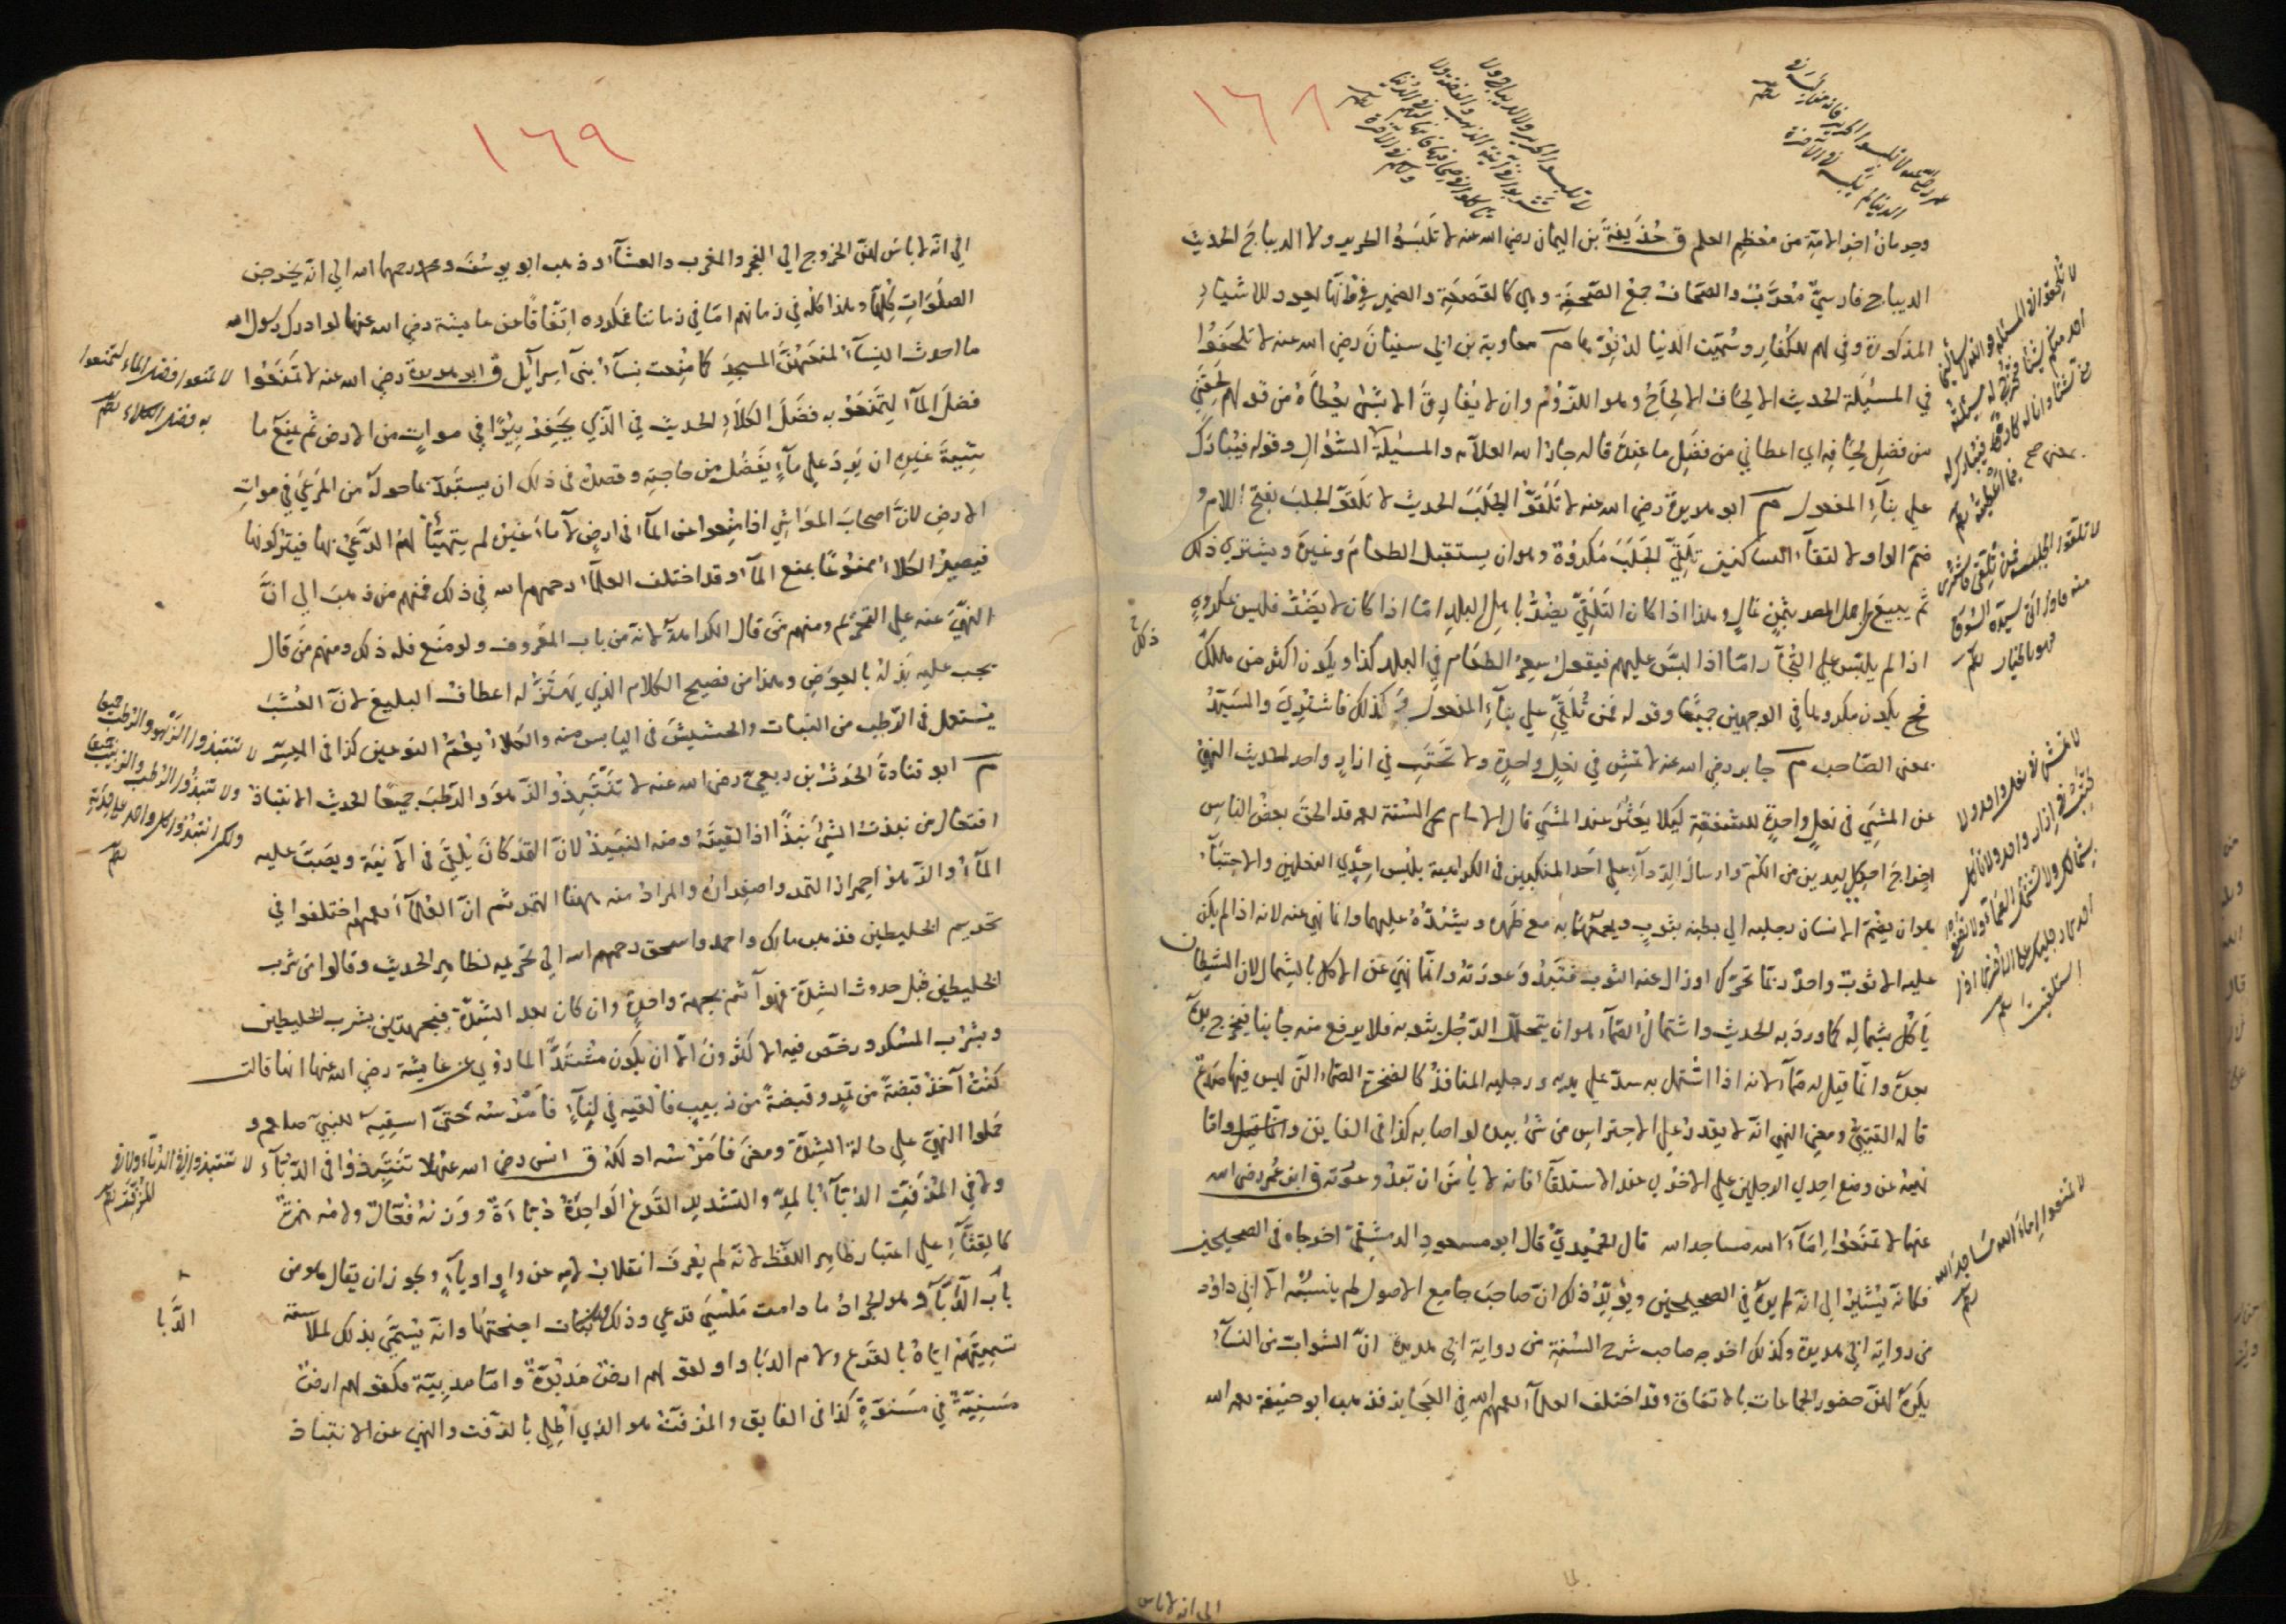 ١٦٨
وحرمانُ اخر الامة من معظم العلم ق حُذَيفَة بن اليمان رضي الله عنه لا تَلبَسُوا الحرير ولا الديباجَ الحديث
الديباج فارسيٌّ مُعرَّبٌ والصّحاف جمع الصَّحفَة وهي كالقَصْعَةِ والضمير في فانّها يعود للاشياءِ
المذكورة وفي لهم للكفار وسُمّيت الدنيا لدنوّها م معاوية بن ابي سفيان رضي الله عنه لا تُلحِفُوا
في المسئلة الحديث الالحاف الالحاح وهو اللزوم وان لا يفارق الا بشئ يُعطاهُ من قولهم لَحَفَني
من فضل لحافه اي اعطاني من فضل ما عنده قاله جارالله العلامة والمسئلة السُّؤال وقوله فيُبارَك
علي بناء المفعول م ابو هريرة رضي الله عنه لا تَلَقَّوُا الجَلَبَ الحديث لا تلقوا الجلب بفتح اللام و
ضم الواو لالتقاء الساكنين تلقّي الجَلَب مكروه وهو ان يستقبل الطعام وغيره ويشتري ذلك
ثم يبيع لاهل المصر بثمن غالٍ وهذا اذا كان التلقّي يضرّ باهل البلد امّا اذا كان لا يضرّ فليس بمكروهٍ
اذا لم يلبّس علي التجار امّا اذا لبّس عليهم فيقول سعر الطعام في البلد كذا ويكون اكثر من ذلك
فح يكون مكروها في الوجهين جميعًا وقوله فمن تُلُقّي علي بناء المفعول وكذلك فاشتُري والسيّد
بمعني الصّاحب م جابر رضي الله عنه لا تمش في نعلٍ واحدةٍ ولا تَحْتَبِ في ازارٍ واحد الحديث النهي
عن المشي في نعلٍ واحدةٍ للشفقة ليلا يعثر عند المشي قال الامام محي السنة رحمه قد الحق بعض الناس
اخراج احدي اليدين من الكُمّ وارسال الرداء علي احد المنكبين في الكراهية بلبس احدي النعلين والاحتباء
هو ان يضمّ الانسان رجليه الي بطنه بثوبٍ ويجمعهما به مع ظهره ويشدّه عليهما وانما نهي عنه لانه اذا لم يكن
عليه الا ثوبٌ واحدٌ ربما تحرّك او زال عنه الثوب فتبدو عورته وانّما نهي عن الاكل بالشمال لان الشيطان
يأكل بشماله كما ورد به الحديث واشتمال الصّماء هو ان يتجلّل الرّجل بثوبه فلا يرفع منه جانبا فيخرج يدهُ
بعده وانّما قيل له صمّاء لانه اذا اشتمل به سدّ علي يديه ورجليه المنافذ كالصخرة الصماء التي ليس فيها صدعٌ
قاله القتيبيّ ومعني النهي انّه لا يقدر علي الاحتراس من شئ بيده لو اصابه كذا في الفايق وامّا
نهيه عن وضع احدي الرجلين علي الاخري عند الاستلقاء فانه لا يأمن ان تبدو عورته ق ابن عُمر رضي الله
عنهما لا تمنعُوا اِمَآء الله مساجد الله قال الحُمَيديّ قال ابو مسعود الدمشقيّ اخرجاه في الصحيحين
فكانه يشير الي انّه لم يره في الصحيحين ويؤيّد ذلك انّ صاحب جامع الاصول لم ينسبه الا الي ابي داود
من رواية ابي هريرة وكذلك اخرجه صاحب شرح السنة من رواية ابي هريرة انّ الشوابّ من النساء
يكره لهنّ حضور الجماعات بالاتفاق وقد اختلف العلماء رحمهم الله في العجايز فذهب ابو حنيفة رحمه الله
الي انه لا باس
لا تلبسوا الحرير ولا الديباج ولا
تشربوا في آنية الذهب والفضة ولا
تأكلوا في صحافها فانها لهم في الدنيا
ولكم في الآخرة
لا تلبسوا الحرير فانه من لبسه في
الدنيا لم يلبسه في الآخرة
لا تلحفوا في المسئلة فوالله لا يسألني
احد منكم شيئا فتخرج له مسئلته
مني شيئا وانا له كاره فيبارك له
فيما اعطيته
لا تلقوا الجلب فمن تلقي فاشتري
منه فاذا اتي سيده السوق
فهو بالخيار
لا تمش في نعل واحد ولا
تحتب في ازار واحد ولا تأكل
بشمالك ولا تشتمل الصماء ولا تضع
احدي رجليك علي الاخري اذا
استلقيت
لا تمنعوا اماء الله مساجد الله
١٦٩
الي انّه لا بأس لهنّ الخروج الي الفجر والمغرب والعشاء وذهب ابو يوسف ومحمد رحمهما الله الي انّه يخرجن
الصلوات كلّها وهذا كلّه في زمانهم امّا في زماننا فمكروه اتفاقًا عن عايشة رضي الله عنها لو ادرك رسول الله
ما احدث النساء لمنعهنّ المسجد كما مُنعت نساء بني اسرآئيل ق ابو هريرة رضي الله عنه لا تمنَعُوا
فضل الماء ليُمنع به فضل الكلأ الحديث في الذي يحفر بئرًا في مواتٍ من الارض ثم يمنع ما
شيةَ غيره ان يرد علي ماءٍ يفضل من حاجته وقصده في ذلك ان يستبدّ بما حوله من المرعي في موات
الارض لانّ اصحاب المواشي اذا مُنعوا عن الماء في ارضٍ لا ماء غيره لم يتهيّأ لهم الرّعي بها فيتركونها
فيصير الكلأ ممنوعًا بمنع الماء وقد اختلف العلماء رحمهم الله في ذلك فمنهم من ذهب الي انّ
النهي عنه علي التحريم ومنهم من قال الكراهة لانه من باب المعروف ولو منع فله ذلك ومنهم من قال
يجب عليه بذله بالعوض وهذا من فصيح الكلام الذي يهتزّ له اعطاف البليغ لانّ العُشب
يستعمل في الرّطب من النبات والحشيش في اليابس منه والكلأ يعمّ النوعين كذا في الميسّر
م ابو قتادة الحرث بن ربعيّ رضي الله عنه لا تنتَبِذُوا الزّهو والرّطب جميعًا الحديث الانتباذ
افتعال من نبذتُ الشئ نبذًا اذا القيته ومنه النبيذ لانّ التمر كان يُلقي في الآنية ويصبّ عليه
الماء والزهو احمرار التمر واصفراره والمراد منه ههنا التمر ثم انّ العلماء رحمهم اختلفوا في
تحريم الخليطين فذهب مالك واحمد واسحق رحمهم الله الي تحريمه لظاهر الحديث وقالوا من شرب
الخليطين قبل حدوث الشدّة فهو آثم بجهة واحدة وان كان بعد الشدّة فبجهتين بشرب الخليطين
وبشرب المسكر ورخّص فيه الاكثرون الا ان يكون مشتدًّا لما رُوي عن عايشة رضي الله عنها انها قالت
كنتُ آخذ قبضةً من تمرٍ وقبضةً من زبيبٍ فالقيه في اناءٍ فامرسه حتّي اسقيه للنبي صلعم و
حملوا النهي علي حالة الشدّة ومعني فامرسه ادلكه ق انس رضي الله عنه لا تنتَبِذُوا في الدّبّاء
ولا في المزفّت الدّبّاء بالمدّ والتشديد القرع الواحدة دُبّاءة ووزنه فُعّال ولامه همزة
كالقثّاء علي اعتبار ظاهر اللفظ لانّه لم يعرف انقلاب لامه عن واوٍ او ياءٍ ويجوز ان يقال هو من
باب الدّباء وهو الجراد ما دامت مُلسًا قرعي وذلك قبل نبات اجنحتها وانّه يسمّي بذلك لملاسته
تسميتهم ايّاه بالقرع ولام الدبا واو لقولهم ارضٌ مدبوّةٌ وامّا مدبيّة فكقولهم ارضٌ
مسنيّةٌ في مسنوّةٍ كذا في الفايق والمزفّت هو الذي اُطلي بالزفت والنهي عن الانتباذ
لا تمنعوا فضل الماء لتمنعوا
به فضل الكلاء
لا تنتبذوا الزهو والرطب جميعا
ولا تنتبذوا الرطب والزبيب جميعا
ولكن انتبذوا كل واحد علي حدته
لا تنتبذوا في الدباء ولا في
المزفت
الدَّبا